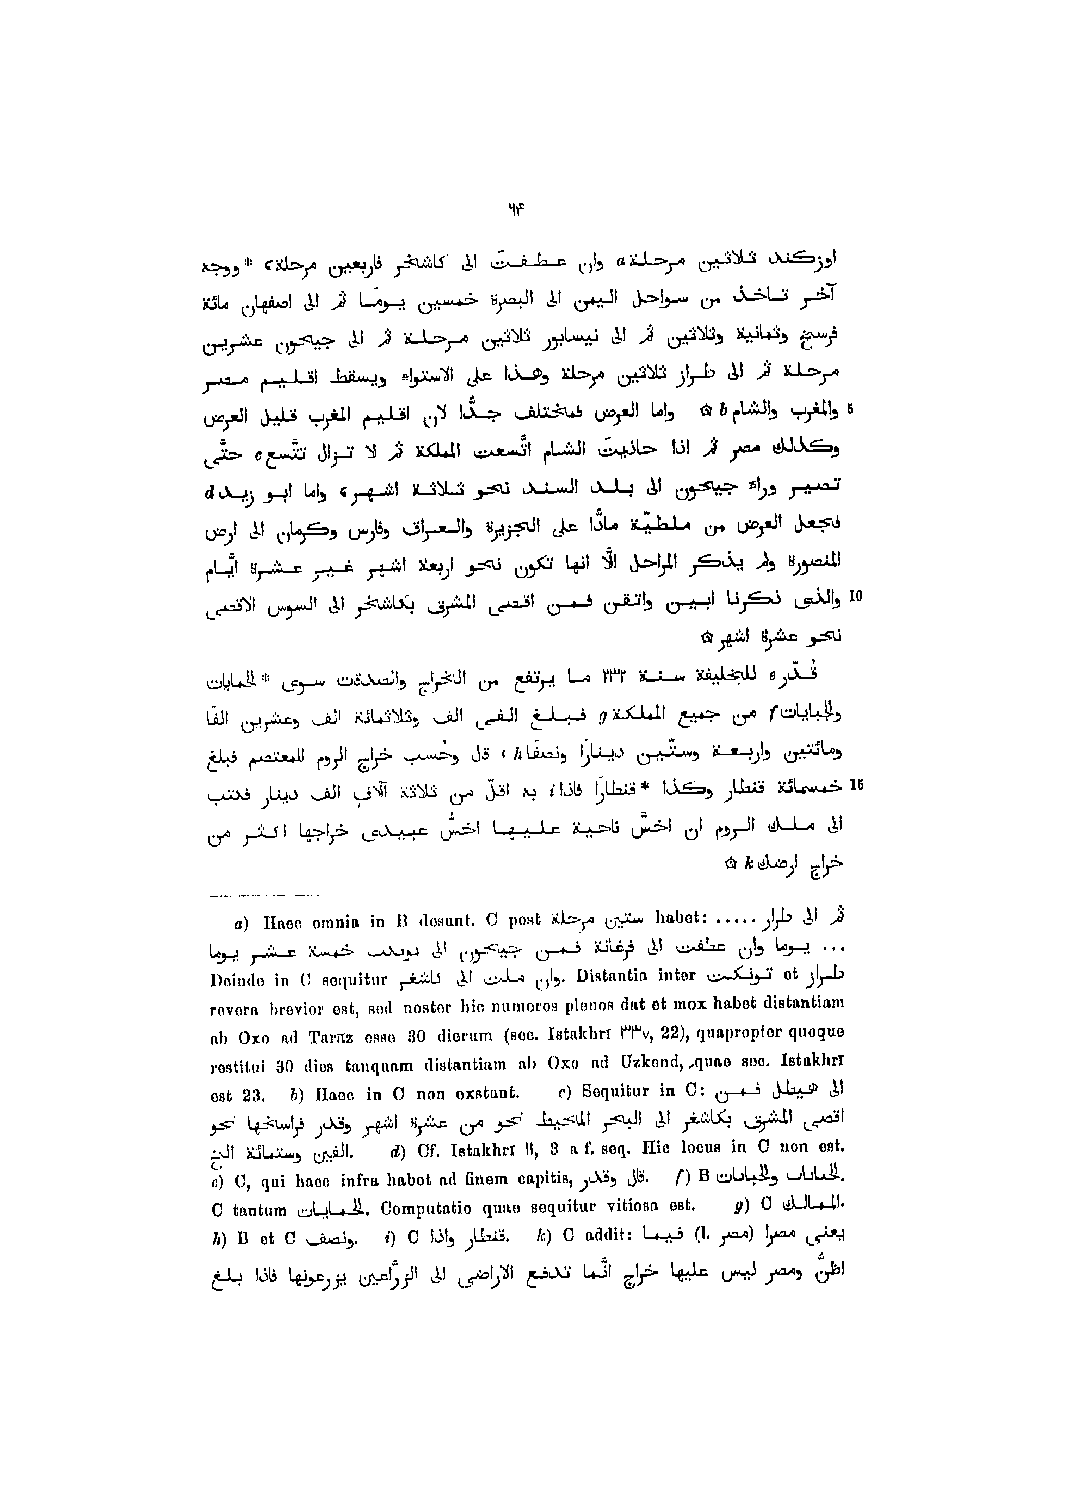 ٦٤
اوزكند ثلاثين مرحلة a وان عطفتَ الى كاشغر فاربعين مرحلة، * ووجه
آخر تاخذ من سواحل اليمن الى البصرة خمسين يومًا ثم الى اصفهان مائة
فرسخ وثمانية وثلاثين ثم الى نيسابور ثلاثين مرحلة ثم الى جيحون عشرين
مرحلة ثم الى طراز ثلاثين مرحلة وهذا على الاستواء ويسقط اقليم مصر
5 والمغرب والشام b ۞ واما العرض فمختلف جدًّا لان اقليم المغرب قليل العرض
وكذلك مصر ثم اذا حاذيتَ الشام اتّسعت المملكة ثم لا تزال تتّسع c حتّى
تصير وراء جيحون الى بلد السند نحو ثلاثة اشهر، واما ابو زيد d
فجعل العرض من ملطيّة مادًّا على الجزيرة والعراق وفارس وكرمان الى ارض
المنصورة ولم يذكر المراحل الّا انها تكون نحو اربعة اشهر غير عشرة ايّام
10 والذى ذكرنا ابين واتقن فمن اقصى المشرق بكاشغر الى السوس الاقصى
نحو عشرة اشهر ۞
قُدّر e للخليفة سنة ٢٣٢ ما يرتفع من الخراج والصدقات سوى * الحمايات
والجبايات f من جميع المملكة g فبلغ الفى الف وثلاثمائة الف وعشرين الفًا
ومائتين واربعة وستّين دينارًا ونصفًا h، قال وحُسب خراج الروم للمعتصم فبلغ
15 خمسمائة قنطار وكذا * قنطارًا فاذا i به اقلّ من ثلاثة آلاف الف دينار فكتب
الى ملك الروم ان اخسّ ناحية عليها اخسّ عبيدى خراجها اكثر من
خراج ارضك k ۞
a) Haec omnia in B desunt. C post ستين مرحلة habet: ..... ثم الى طراز
... يوما وان عطفت الى فرغانة فمن جيحون الى خمسة عشر يوما
Deinde in C sequitur وان ملت الى كاشغر. Distantia inter تونكت et طراز
revera brevior est, sed noster hic numeros plenos dat et mox habet distantiam
ab Oxo ad Tarâz esse 30 dierum (sec. Istakhrî ٣٣٧, 22), quapropter quoque
restitui 30 dies tanquam distantiam ab Oxo ad Uzkend, quae sec. Istakhrî
est 23. b) Haec in C non exstant. c) Sequitur in C: الى هيطل فمن
اقصى المشرق بكاشغر الى البحر المحيط نحو من عشرة اشهر وقدر فراسخها نحو
الفين وستمائة الخ. d) Cf. Istakhrî ١١, 3 a f. seq. Hic locus in C non est.
e) C, qui haec infra habet ad finem capitis, قال وقدر. f) B الجبايات.
C tantum الحمايات. Computatio quae sequitur vitiosa est. g) C الممالك.
h) B et C ونصف. i) C قنطار واذا. k) C addit: يعنى مصرا (l. مصر) فيما
اظنّ ومصر ليس عليها خراج انّما تدفع الاراضى الى الزرّاعين يزرعونها فاذا بلغ